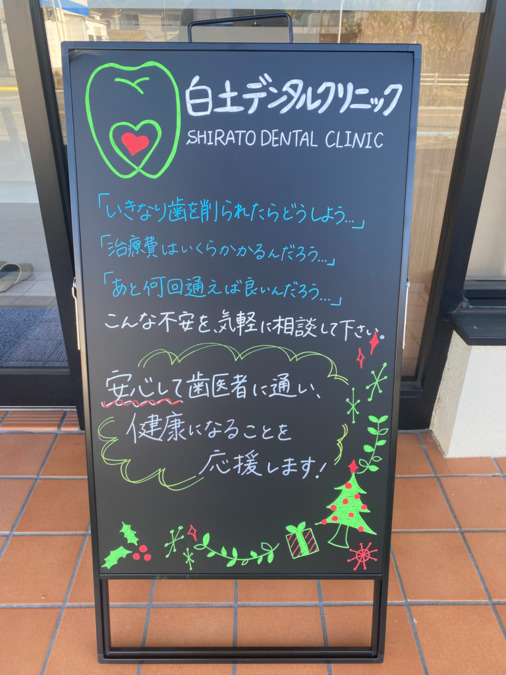 白土デンタルクリニック
SHIRATO DENTAL CLINIC
「いきなり歯を削られたらどうしよう…」
「治療費はいくらかかるんだろう…」
「あと何回通えば良いんだろう…」
こんな不安を、気軽に相談して下さい。
安心して歯医者に通い、
健康になることを
応援します!